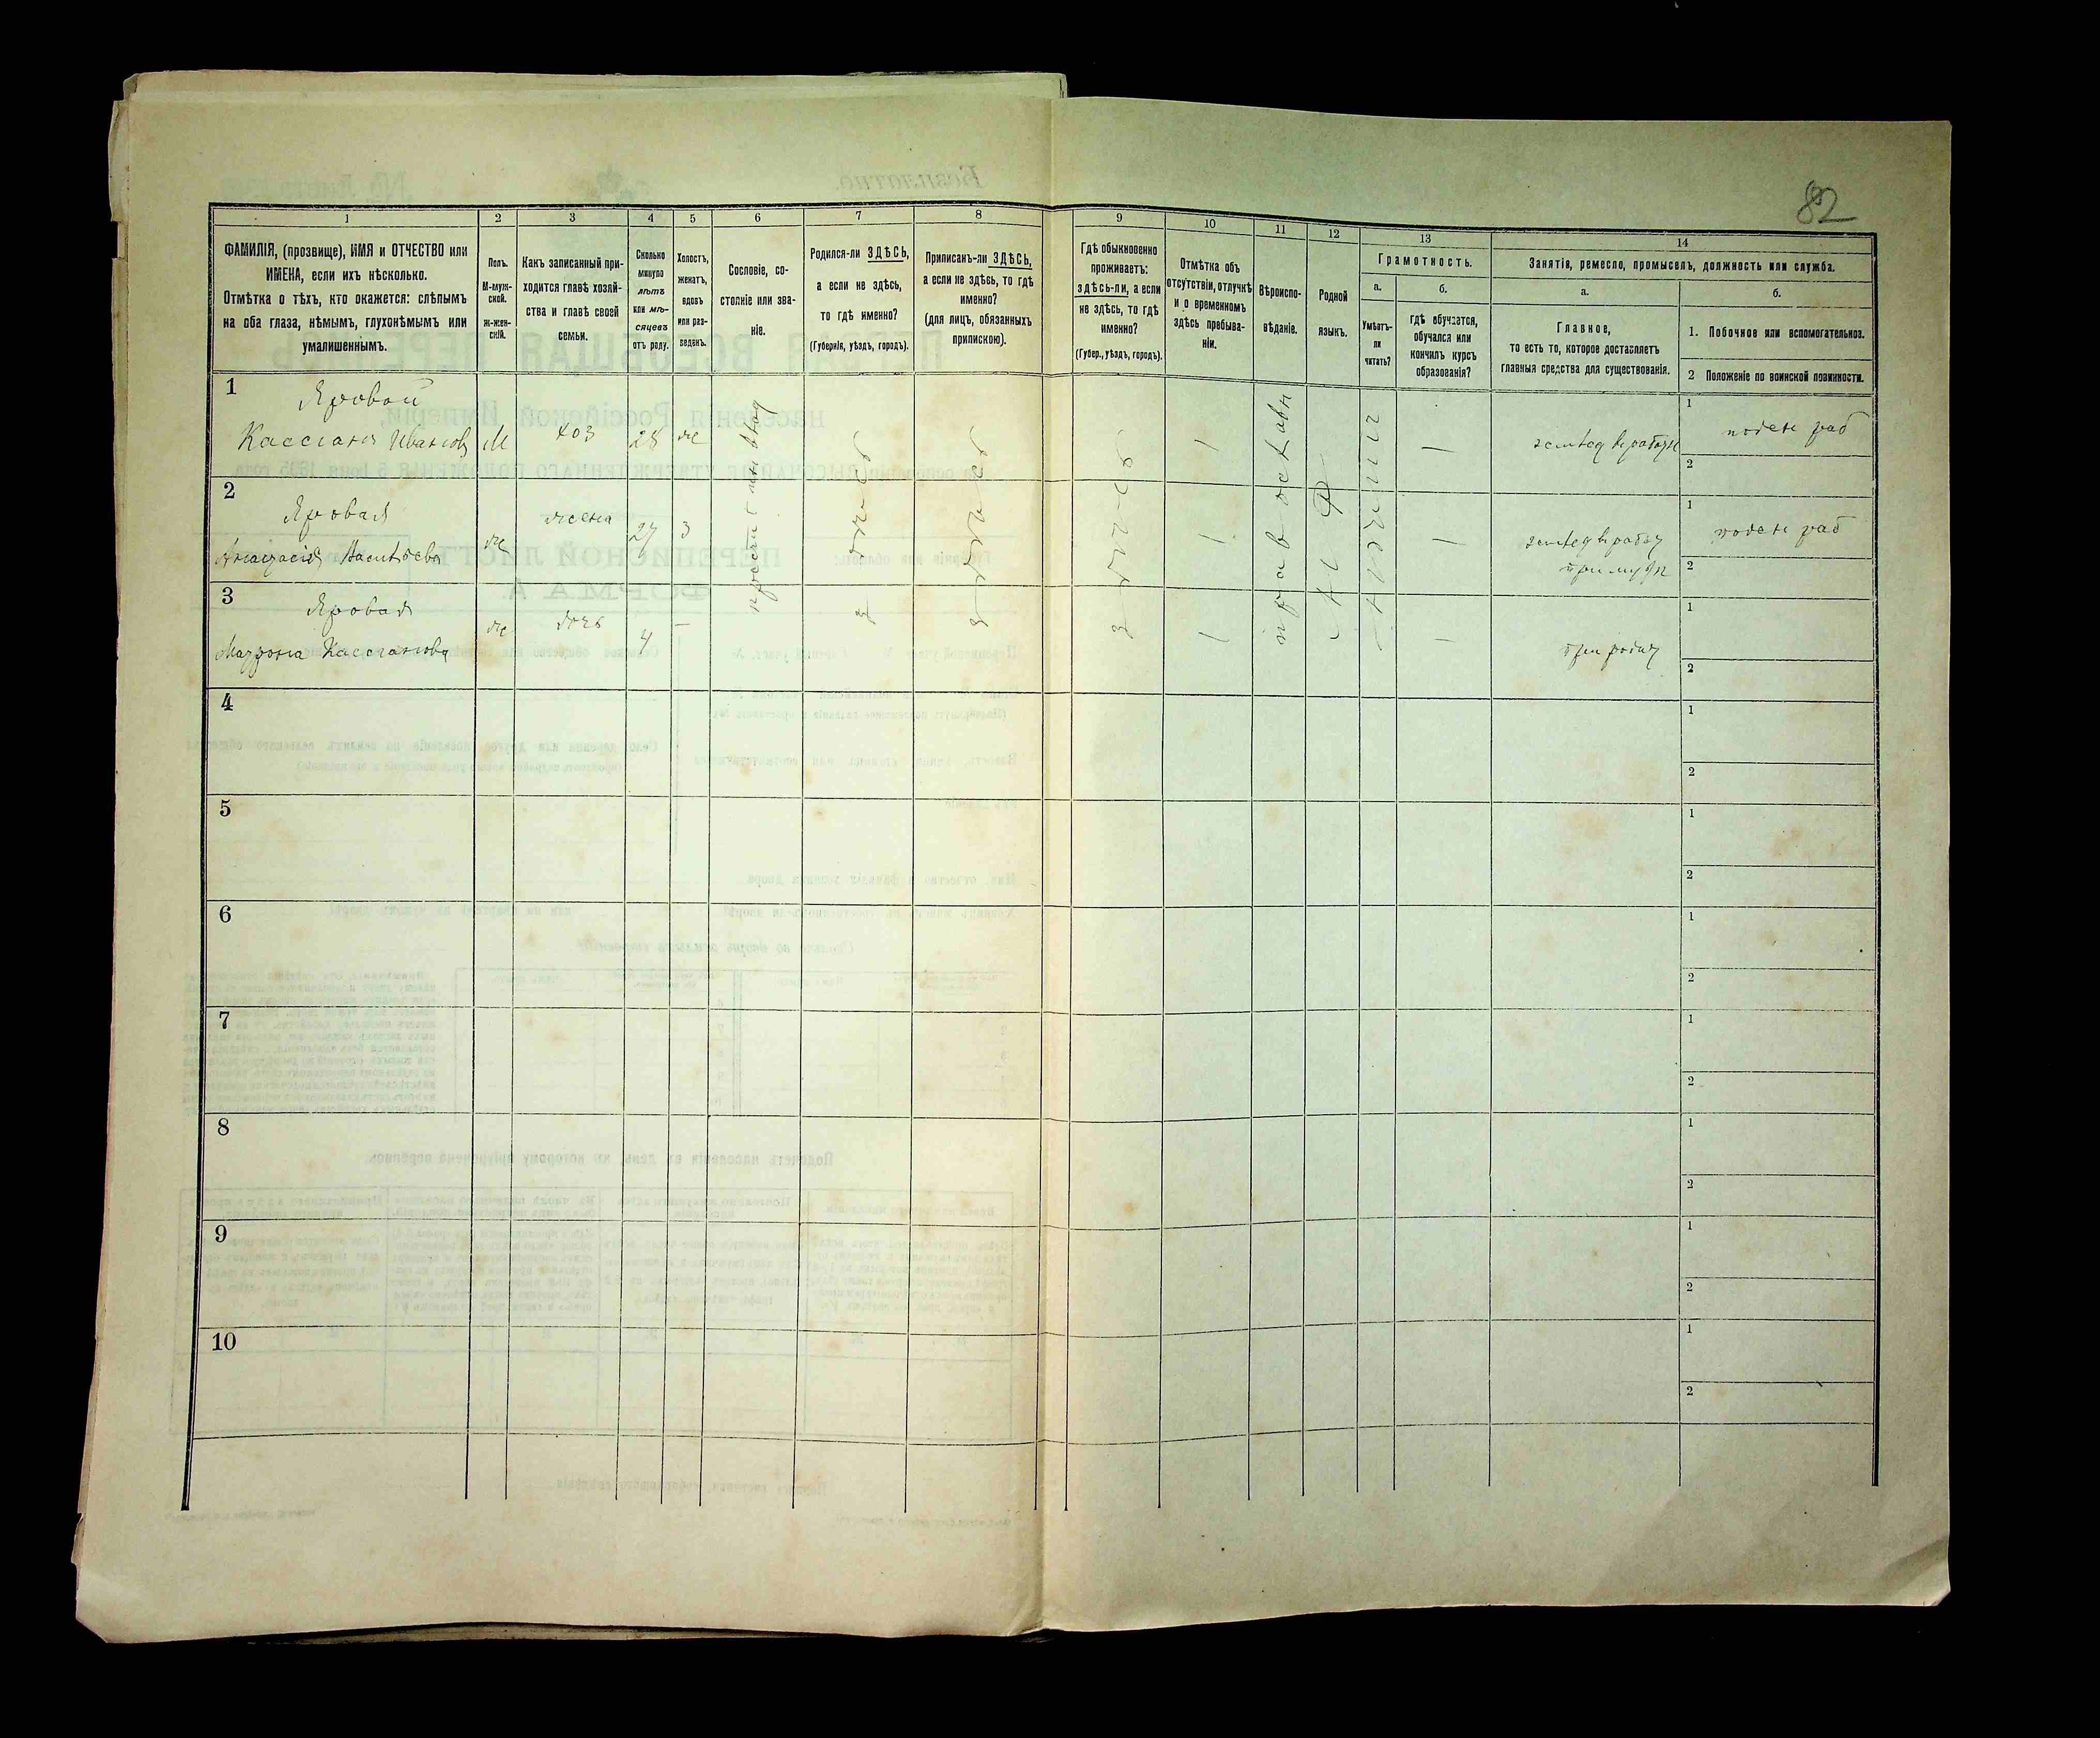 82
1
2
3
4
5
6
7
8
9
10
11
12
13
14
ФАМИЛІЯ, (прозвище), ИМЯ и ОТЧЕСТВО или
ИМЕНА, если ихъ нѣсколько.
Отмѣтка о тѣхъ, кто окажется: слѣпымъ
на оба глаза, нѣмымъ, глухонѣмымъ или
умалишеннымъ.
Полъ.
М-муж-
ской.
Ж-жен-
скій.
Какъ записанный при-
ходится главѣ хозяй-
ства и главѣ своей
семьи.
Сколько
минуло
лѣтъ
или мѣ-
сяцевъ
отъ роду.
Холостъ,
женатъ,
вдовъ
или раз-
веденъ.
Сословіе, со-
стояніе или зва-
ніе.
Родился-ли ЗДѢСЬ,
а если не здѣсь,
то гдѣ именно?
(Губернія, уѣздъ, городъ).
Приписанъ-ли ЗДѢСЬ,
а если не здѣсь, то гдѣ
именно?
(для лицъ, обязанныхъ
припискою).
Гдѣ обыкновенно
проживаетъ:
здѣсь-ли, а если
не здѣсь, то гдѣ
именно?
(Губер., уѣздъ, городъ).
Отмѣтка объ
отсутствіи, отлучкѣ
и о временномъ
здѣсь пребыва-
ніи.
Вѣроиспо-
вѣданіе.
Родной
языкъ.
Грамотность.
а.
Умѣетъ-
ли
читать?
б.
гдѣ обучается,
обучался или
кончилъ курсъ
образованія?
Занятія, ремесло, промыселъ, должность или служба.
а.
Главное,
то есть то, которое доставляетъ
главныя средства для существованія.
б.
1. Побочное или вспомогательное.
2 Положеніе по воинской повинности.
1
Яровой
Кассіанъ Ивановъ
М
хоз
28
же
1
поден раб
2
2
Яровая
Анастасія Васильева
же
жена
27
з
при мужѣ
1
поден раб
2
3
Яровая
Матрона Кассіанова
же
дочь
4
—
при родит
1
2
здѣсь
здѣсь
здѣсь
православн
4
1
2
5
1
2
6
1
2
7
1
2
8
1
2
9
1
2
10
1
2